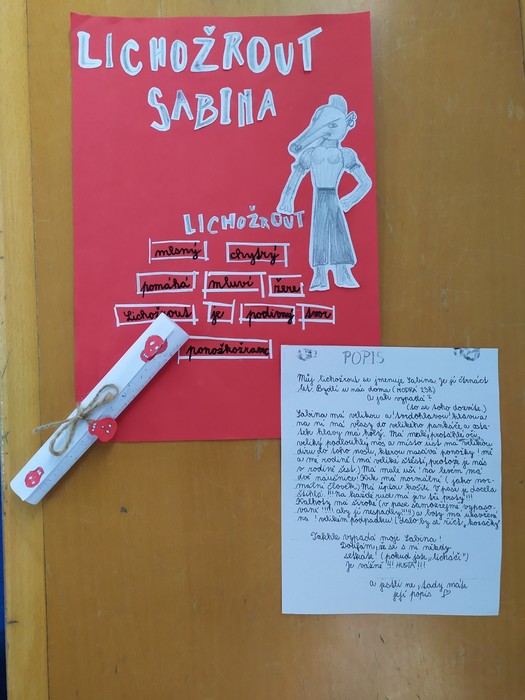 LICHOŽROUT
SABINA
LICHOŽROUT
mlsný chytrý
pomáhá mluví žere
Lichožrout je podivný tvor
ponožkožravec
POPIS
Můj lichožrout se jmenuje Sabina. Je jí čtrnáct
let. Bydlí u nás doma (MODRÁ 238)
A jak vypadá?
(to se toho dozvíte.)
Sabina má velikou a! vrdohlavou! hlavu a
na ní má vlasy do velikého pankáče a osta-
tek hlavy má holý. Má malé, protáhlé oči,
veliký podlouhlý nos a místo úst má velikou
díru do toho nosu, kterou nasává ponožky! mé
a mé rodiny (má veliké štěstí, protože je nás
v rodině šest.) Má malé uši! na levém má
dvě naušnice! Krk má normální (jako nor-
mální člověk.) Má
v pase je docela
štíhlá. !!! Na každé ruce má jen tři prsty!!!
Kalhoty má široké (v pase samozřejmě vypaso-
vané !!!!, aby jí nespadly!!!!) a boty má ukončené
na! velikém podpadku! (dalo by se říct, kozačky)
Takhle vypadá moje Sabina!
Doufám, že se s ní nikdy
setkáte! (pokud jste „lichači")
Je vážně !!! HUSTÁ !!!
a jestli ne, tady máte
její popis